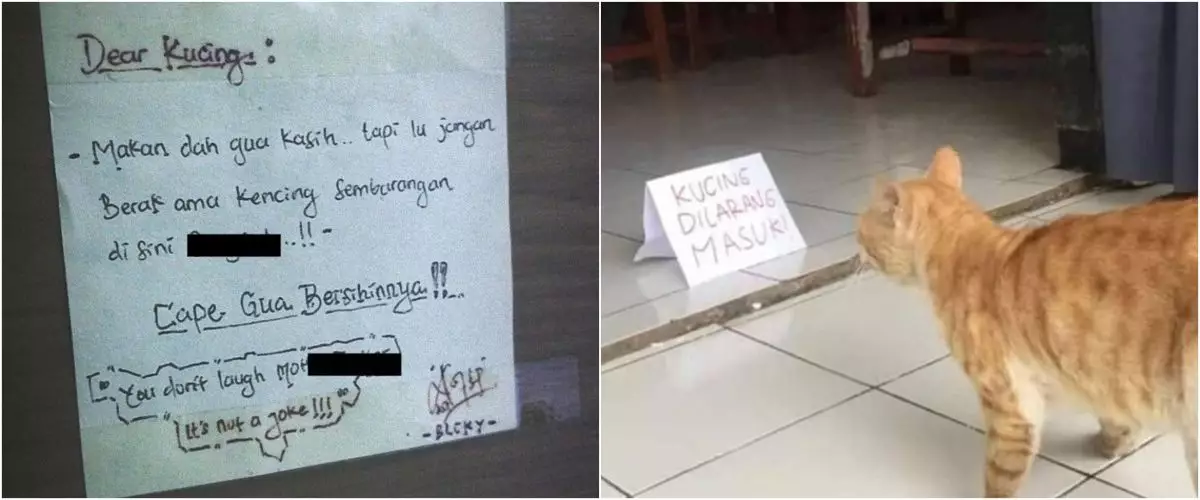 Dear Kucing :
- Makan dah gua kasih.. tapi lu jangan
Berak ama kencing sembarangan
di sini ..!! -
Cape Gua Bersihinnya!!
"You don't laugh Mot
"It's not a joke!!!"
- BLCKY -
KUCING
DILARANG
MASUK!